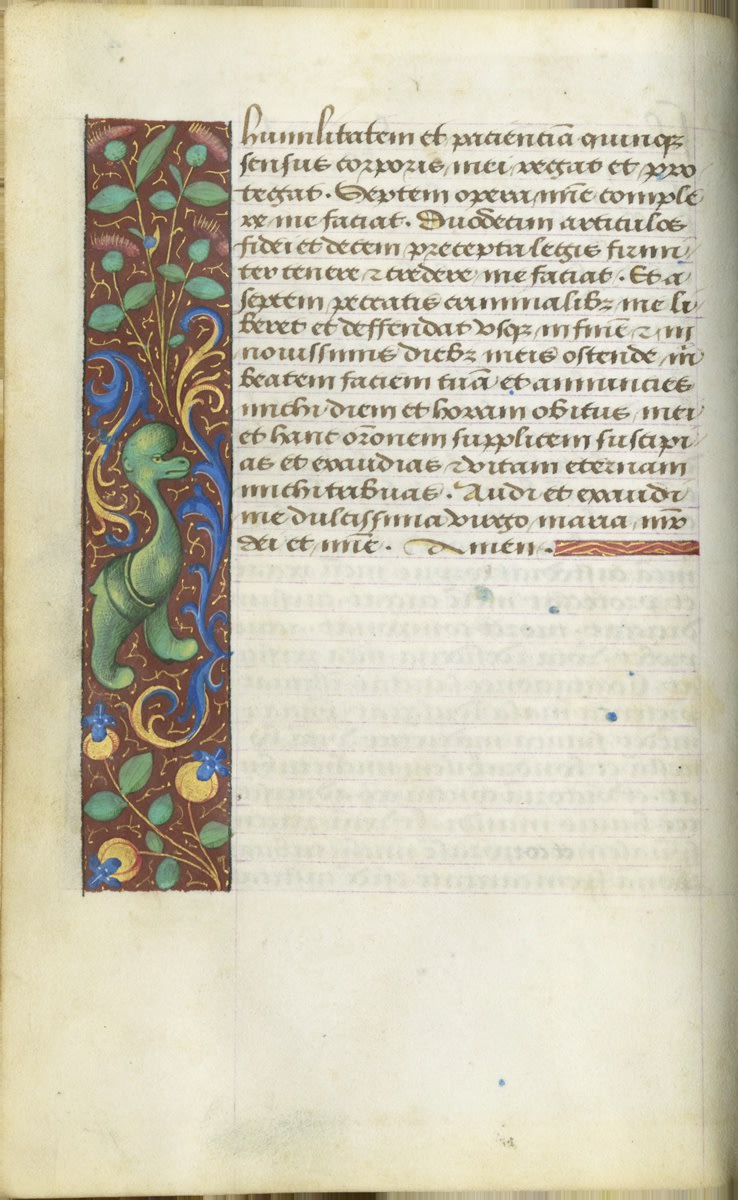 humilitatem et pacienciā quinqꝫ
sensus corporis mei regat et pro
tegat. Septem opera mīe comple
re me faciat. Duodecim articulos
fidei et decem precepta legis firmi
ter tenere ⁊ credere me faciat. Et a
septem peccatis criminalibꝫ me li
beret et deffendat vsqꝫ in finē ⁊ in
nouissimis diebꝫ meis ostende m̄
beatem faciem tuā et annuncies
michi diem et horam obitus mei
et hanc orōnem supplicem suscipi
as et exaudias ⁊ vitam eternam
michi tribuas. Audi et exaudi
me dulcissima virgo maria mr̄
dei et mīe. Amen.